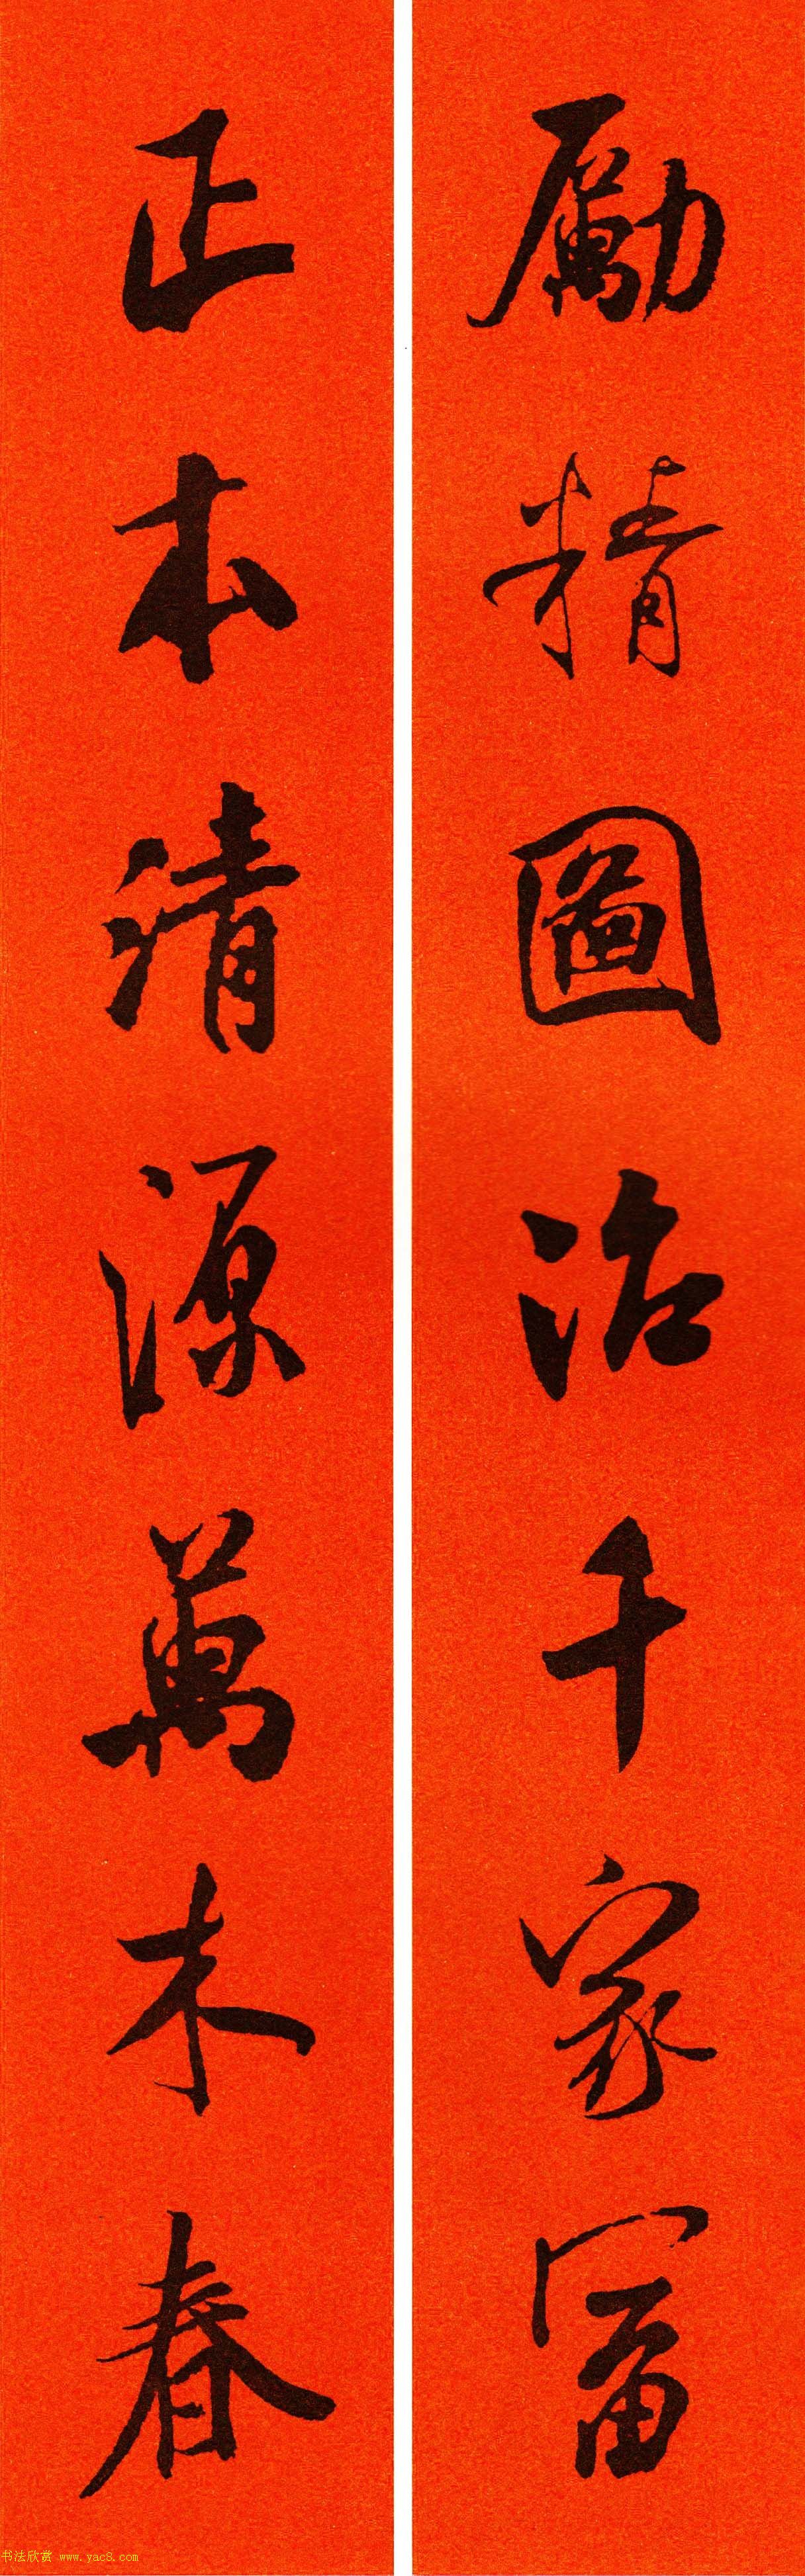 勵精圖治千家富
正本清源萬木春
书法欣赏 www.yac8.com